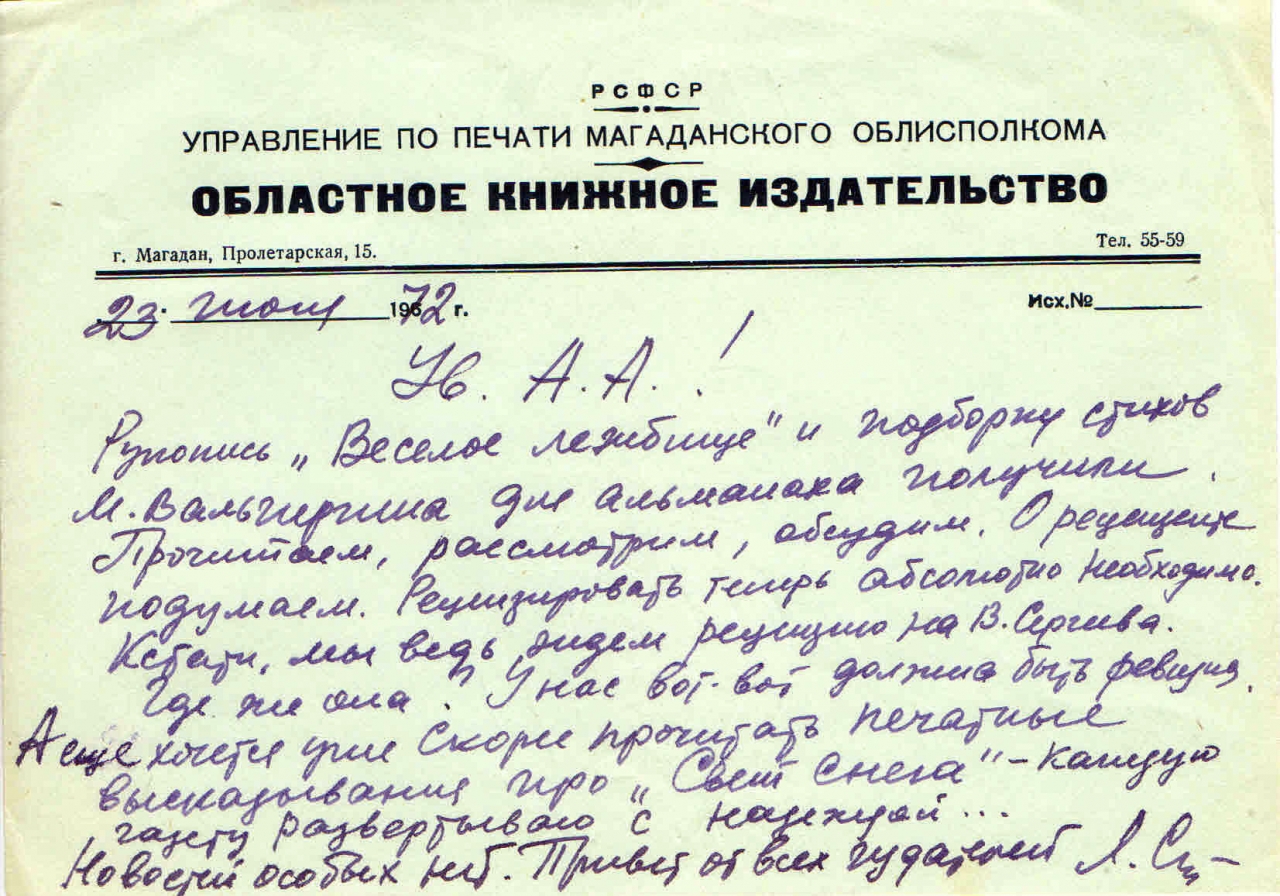 РСФСР
УПРАВЛЕНИЕ ПО ПЕЧАТИ МАГАДАНСКОГО ОБЛИСПОЛКОМА
ОБЛАСТНОЕ КНИЖНОЕ ИЗДАТЕЛЬСТВО
г. Магадан, Пролетарская, 15.
Тел. 55-59
23. 1972 г.
Исх.№
Ув. А.А.!
Рукопись „Веселое лежбище" и подборку стихов
М. Вальгиргина для альманаха получили.
Прочитаем, рассмотрим, обсудим. О рецензенте
подумаем. Рецензировать теперь абсолютно необходимо.
Кстати, мы ведь ждем рецензию на В. Сергеева.
Где же она? У нас вот-вот должна быть ревизия.
А еще хочется уже скорее прочитать печатные
высказывания про „Свет снега" – каждую
газету развертываю с надеждой...
Новостей особых нет. Привет от всех издателей